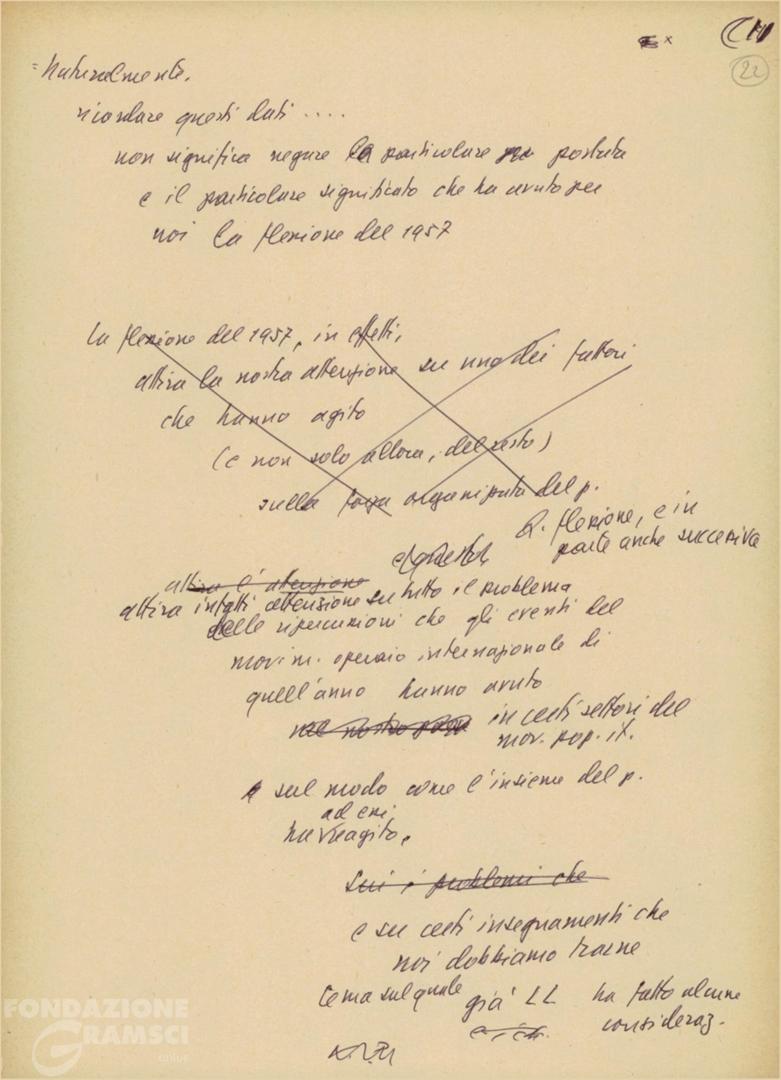 22
Naturalmente,
ricordare questi dati ....
non significa negare la particolare portata
e il particolare significato che ha avuto per
noi la flessione del 1957
La flessione del 1957, in effetti,
attira la nostra attenzione su uno dei fattori
che hanno agito
(e non solo allora, del resto)
sulla forza organizzata del p.
Q. flessione, e in
parte anche successiva
attira l'attenzione
attira infatti attenzione su tutto il problema
delle ripercussioni che gli eventi del
movim. operaio internazionale di
quell'anno hanno avuto
nel nostro paese in certi settori del
mov. pop. it.
sul modo come l'insieme del p.
ad essi
ha reagito,
sui problemi che
e su certi insegnamenti che
noi dobbiamo trarne
tema sul quale già LL ha fatto alcune
consideraz.
FONDAZIONE
GRAMSCI
onlus